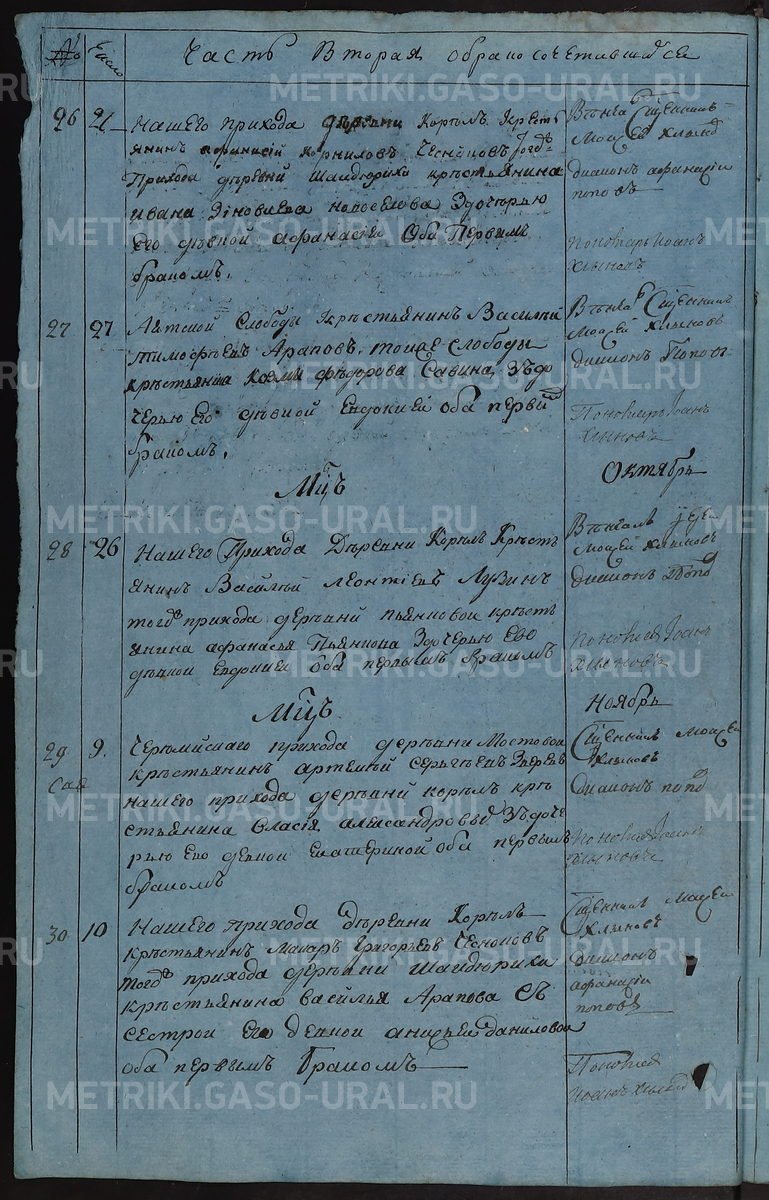 № Число Часть Вторая обракосочетавшихся
26 21 Нашего прихода деревни Корыл Крестъ
янинъ афанасий Корниловъ Чесноковъ Тогдъ
Прихода деревни Шайдюрихи крѣстьянина
ивана Зіновиева новоселова Здочерью
его дѣвкой афанасіей Оба Первымъ
бракомъ.
Вѣнча Сщенникъ
Моисей Клыков
диаконъ афанасіи
поповъ
Пономарь Иоанъ
Клыковъ
27 27 Аятской Слободы крѣстьянинъ Василий
тимофѣевъ Араповъ, тойже слободы
крѣстьянина Козмы федорова Савина, Здо
черью его дѣвкой Евдокией оба первы
бракомъ.
Вѣнча Сщенникъ
Моисей Клыковъ
диаконъ Поповъ
Пономарь Иоанъ
Клыковъ
Мцъ Октябрь
28 26 Нашего Прихода Деревни Корылъ Крѣсть
янинъ Василий леонтиевъ Лузинъ
тогдъ прихода деревни пьянковой крѣсть
янина афанасья Пьянкова Здочерью Ево
дѣвкой Евдокией оба первымъ бракомъ
Вѣнчалъ иереи
Моисей Клыковъ
диаконъ Попо
Пономарь Иоанъ
Клыковъ
Мцъ Ноябрь
29 9. Черемисскаго прихода деревни Мостовой
крѣстьянинъ артемий сергѣевъ Зверевъ
нашего прихода деревни корылъ кре
стьянина Власия александровы Здоче
рью его девкой Екатериной оба первымъ
бракомъ
Сщенникъ Моисей
Клыковъ
диаконъ попо
Пономарь Иоанъ
Клыковъ
30 10 Нашего прихода дѣревни Корылъ
крѣстьянинъ Макаръ Григорьевъ Чесноковъ
тогдъ прихода деревни шайдюрихи
крѣстьянина василья Арапова Съ
сестрой его девкой анисьей даниловой
оба первымъ бракомъ
Сщенникъ Моисей
Клыковъ
диаконъ
афанасіи
поповъ
Пономарь
Иоанъ Клыков
METRIKI.GASO-URAL.RU